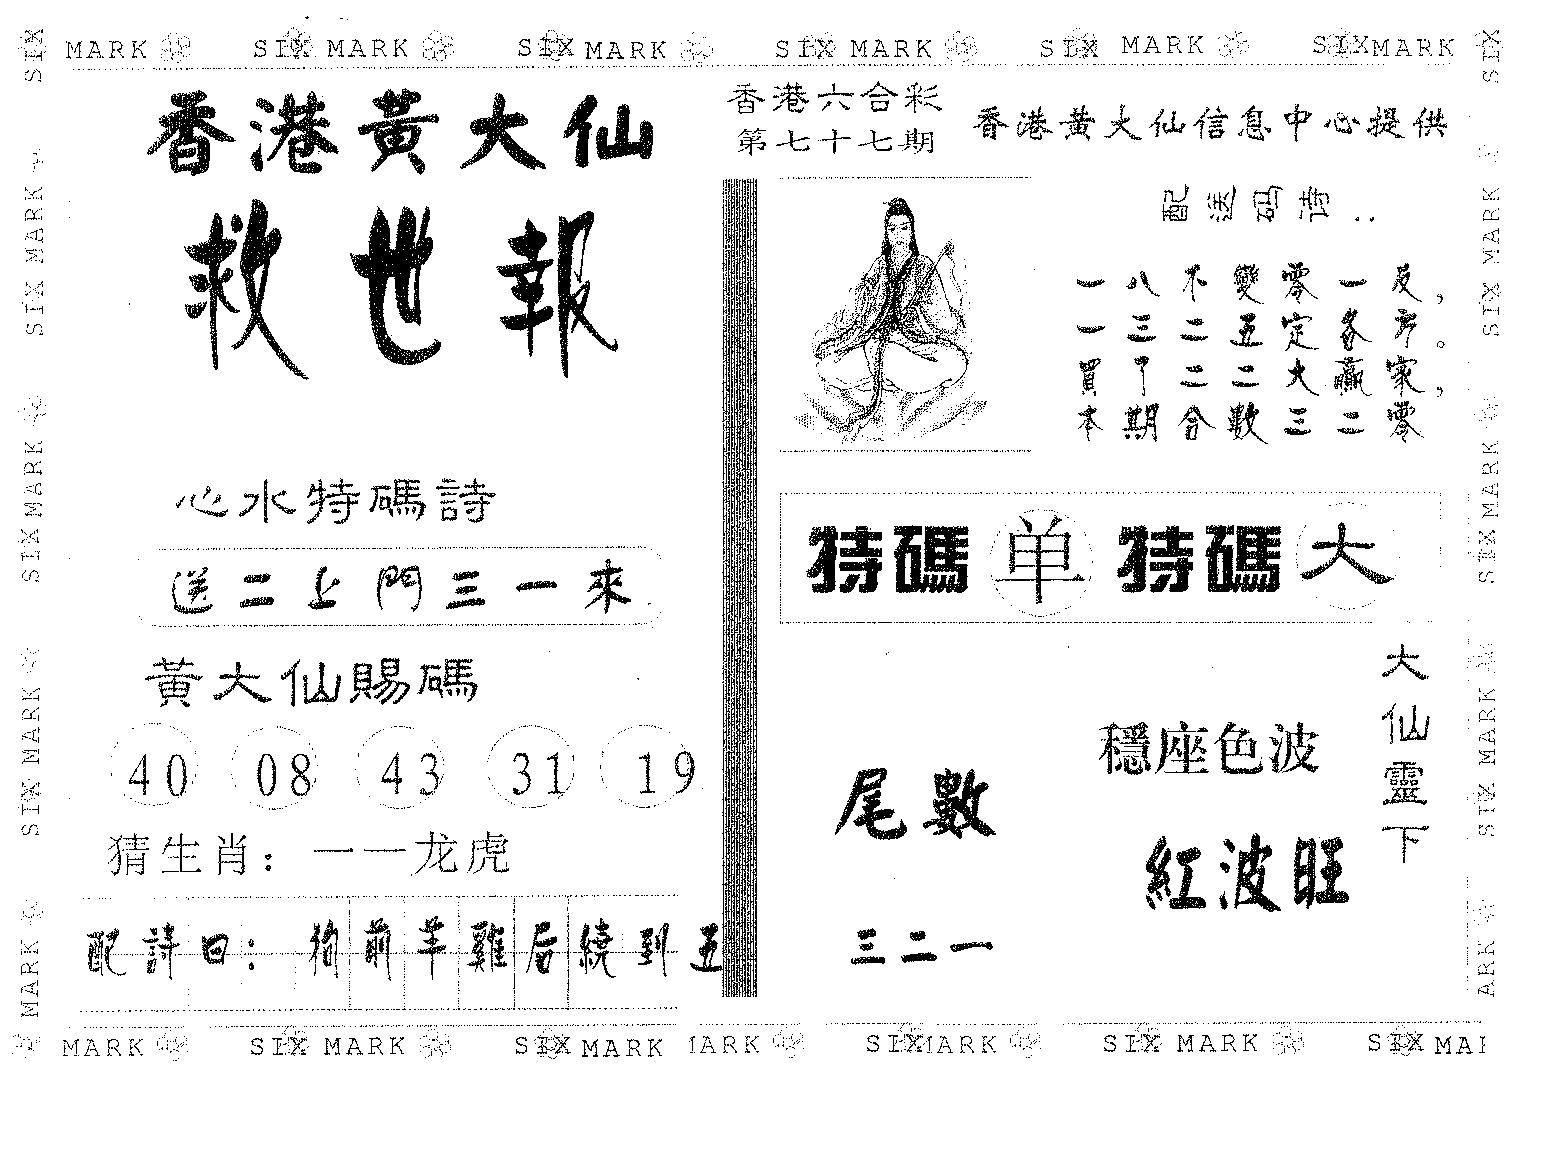 MARK SIX MARK SIX MARK SIX MARK SIX MARK SIX MARK
香港黃大仙
救世報
心水特碼詩
送二上門三一來
黃大仙賜碼
40 08 43 31 19
猜生肖：一一龙虎
配詩曰：狗前羊雞后繞到五
香港六合彩
第七十七期
香港黃大仙信息中心提供
配送码诗：
一八不變零一反，
一三二五定各方。
買了二二大贏家，
本期合數三二零
特碼 单 特碼 大
大仙靈下
穩座色波
紅波旺
尾數
三二一
SIX MARK SIX MARK SIX MARK SIX MARK
SIX MARK SIX MARK SIX MARK ARK
MARK SIX MARK SIX MARK ARK SIX MARK SIX MARK SIX MAR